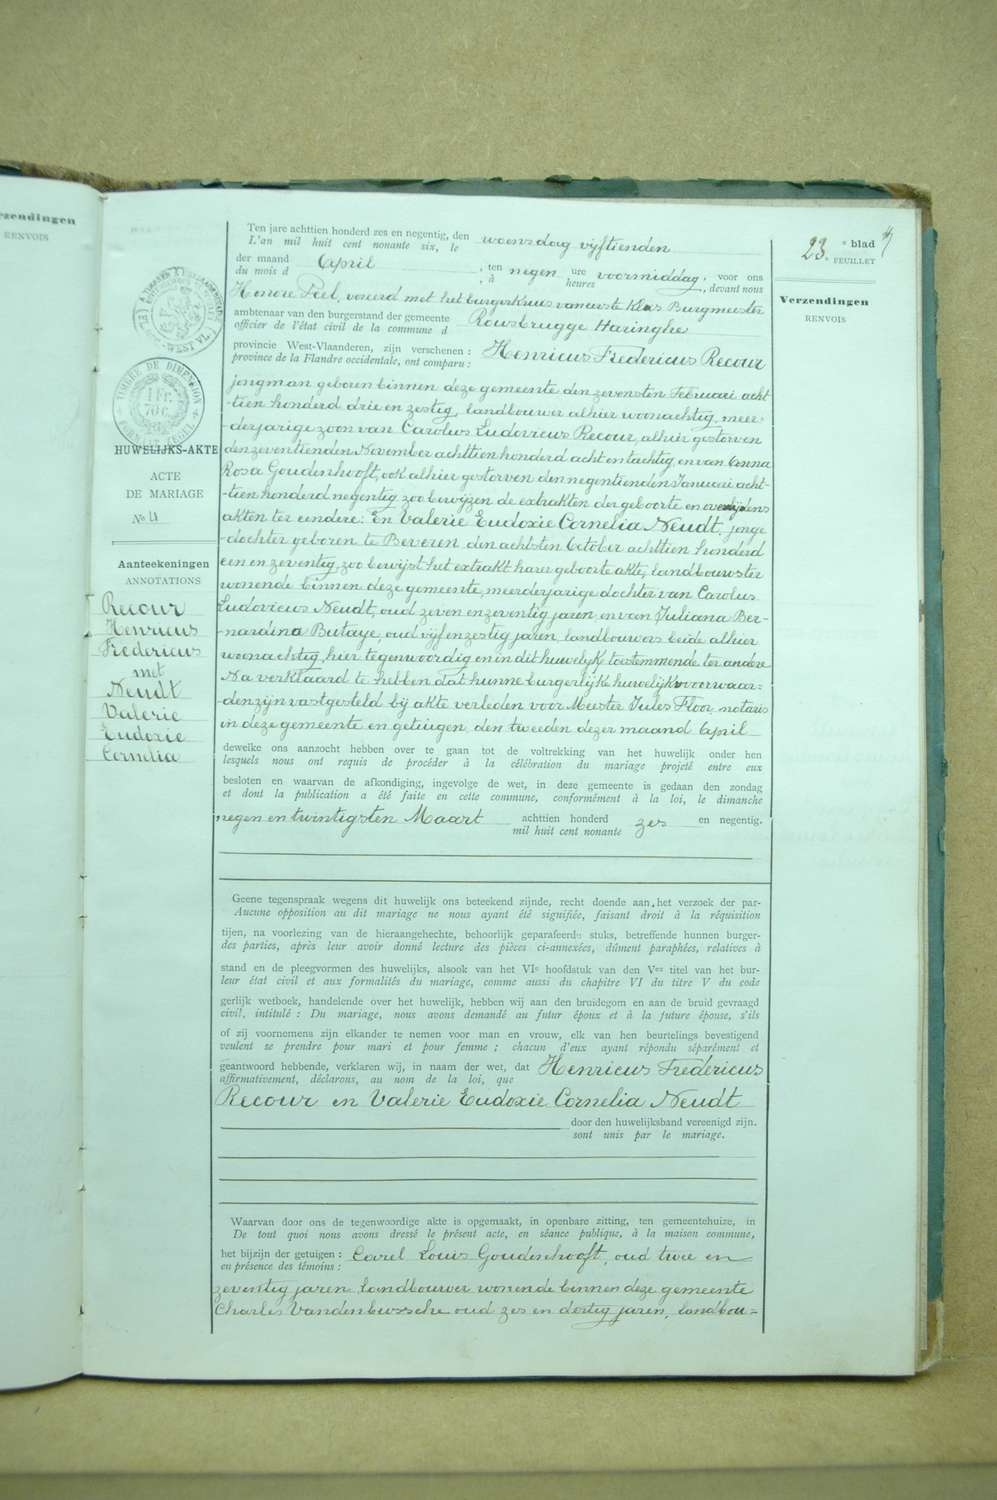 rzendingen
RENVOIS
23.e blad
FEUILLET
Verzendingen
RENVOIS
TIMBRE DE DIMENSION
1 Fr.
70 c.
WEST VL.
HUWELIJKS-AKTE
ACTE
DE MARIAGE
No 4
Aanteekeningen
ANNOTATIONS
Recour
Henricus
Fredericus
met
Neudt
Valerie
Eudoxie
Cornelia
Ten jare achttien honderd zes en negentig, den woensdag vijftienden
L'an mil huit cent nonante six, le
der maand April, ten negen ure voormiddag, voor ons
du mois d , à heures , devant nous
Honoré Peel, vereerd met het burgerkruis van eerste klas Burgmeester
ambtenaar van den burgerstand der gemeente Rousbrugge Haringhe
officier de l'état civil de la commune d
provincie West-Vlaanderen, zijn verschenen : Henricus Fredericus Recour
province de la Flandre occidentale, ont comparu :
jongman geboren binnen deze gemeente den zevensten Februari acht-
-tien honderd drie en zestig, landbouwer alhier woonachtig, meer-
-derjarige zoon van Carolus Ludovicus Recour, alhier gestorven
den zeventienden November achttien honderd acht en tachtig, en van Anna
Rosa Goudenhooft, ook alhier gestorven den negentienden Januari acht-
-tien honderd negentig, zoo bewijzen de extrakten der geboorte en overlijdens
akten ter eendere: En Valerie Eudoxie Cornelia Neudt, jonge
-dochter geboren te Beveren den achtsten October achttien honderd
een en zeventig, zoo bewijst het extrakt harer geboorte akte, landbouwster
wonende binnen deze gemeente, meerderjarige dochter van Carolus
Ludovicus Neudt, oud zeven en zeventig jaren, en van Juliana Ber-
-nardina Butaye, oud vijf en zestig jaren, landbouwers beide alhier
woonachtig, hier tegenwoordig en in dit huwelijk toestemmende ter andere
Na verklaard te hebben dat hunne burgerlijke huwelijksvoorwaar-
-den zijn vastgesteld bij akte verleden voor Meester Jules Floor, notaris
in deze gemeente en getuigen den tweeden dezer maand April
dewelke ons aanzocht hebben over te gaan tot de voltrekking van het huwelijk onder hen
lesquels nous ont requis de procéder à la célébration du mariage projeté entre eux
besloten en waarvan de afkondiging, ingevolge de wet, in deze gemeente is gedaan den zondag
et dont la publication a été faite en cette commune, conformément à la loi, le dimanche
negen en twintigsten Maart achttien honderd zes en negentig.
mil huit cent nonante
Geene tegenspraak wegens dit huwelijk ons beteekend zijnde, recht doende aan het verzoek der par-
Aucune opposition au dit mariage ne nous ayant été signifiée, faisant droit à la réquisition
tijen, na voorlezing van de hieraangehechte, behoorlijk geparafeerde stuks, betreffende hunnen burger-
des parties, après leur avoir donné lecture des pièces ci-annexées, dûment paraphées, relatives à
stand en de pleegvormen des huwelijks, alsook van het VIe hoofdstuk van den Ven titel van het bur-
leur état civil et aux formalités du mariage, comme aussi du chapitre VI du titre V du code
gerlijk wetboek, handelende over het huwelijk, hebben wij aan den bruidegom en aan de bruid gevraagd
civil, intitulé : Du mariage, nous avons demandé au futur époux et à la future épouse, s'ils
of zij voornemens zijn elkander te nemen voor man en vrouw, elk van hen beurtelings bevestigend
veulent se prendre pour mari et pour femme ; chacun d'eux ayant répondu séparément et
geantwoord hebbende, verklaren wij, in naam der wet, dat Henricus Fredericus
affirmativement, déclarons, au nom de la loi, que
Recour en Valerie Eudoxie Cornelia Neudt
door den huwelijksband vereenigd zijn.
sont unis par le mariage.
Waarvan door ons de tegenwoordige akte is opgemaakt, in openbare zitting, ten gemeentehuize, in
De tout quoi nous avons dressé le présent acte, en séance publique, à la maison commune,
het bijzijn der getuigen : Carel Louis Goudenhooft, oud twee en
en présence des témoins :
zeventig jaren, landbouwer wonende binnen deze gemeente
Charles Vandenbussche oud zes en dertig jaren, landbou=